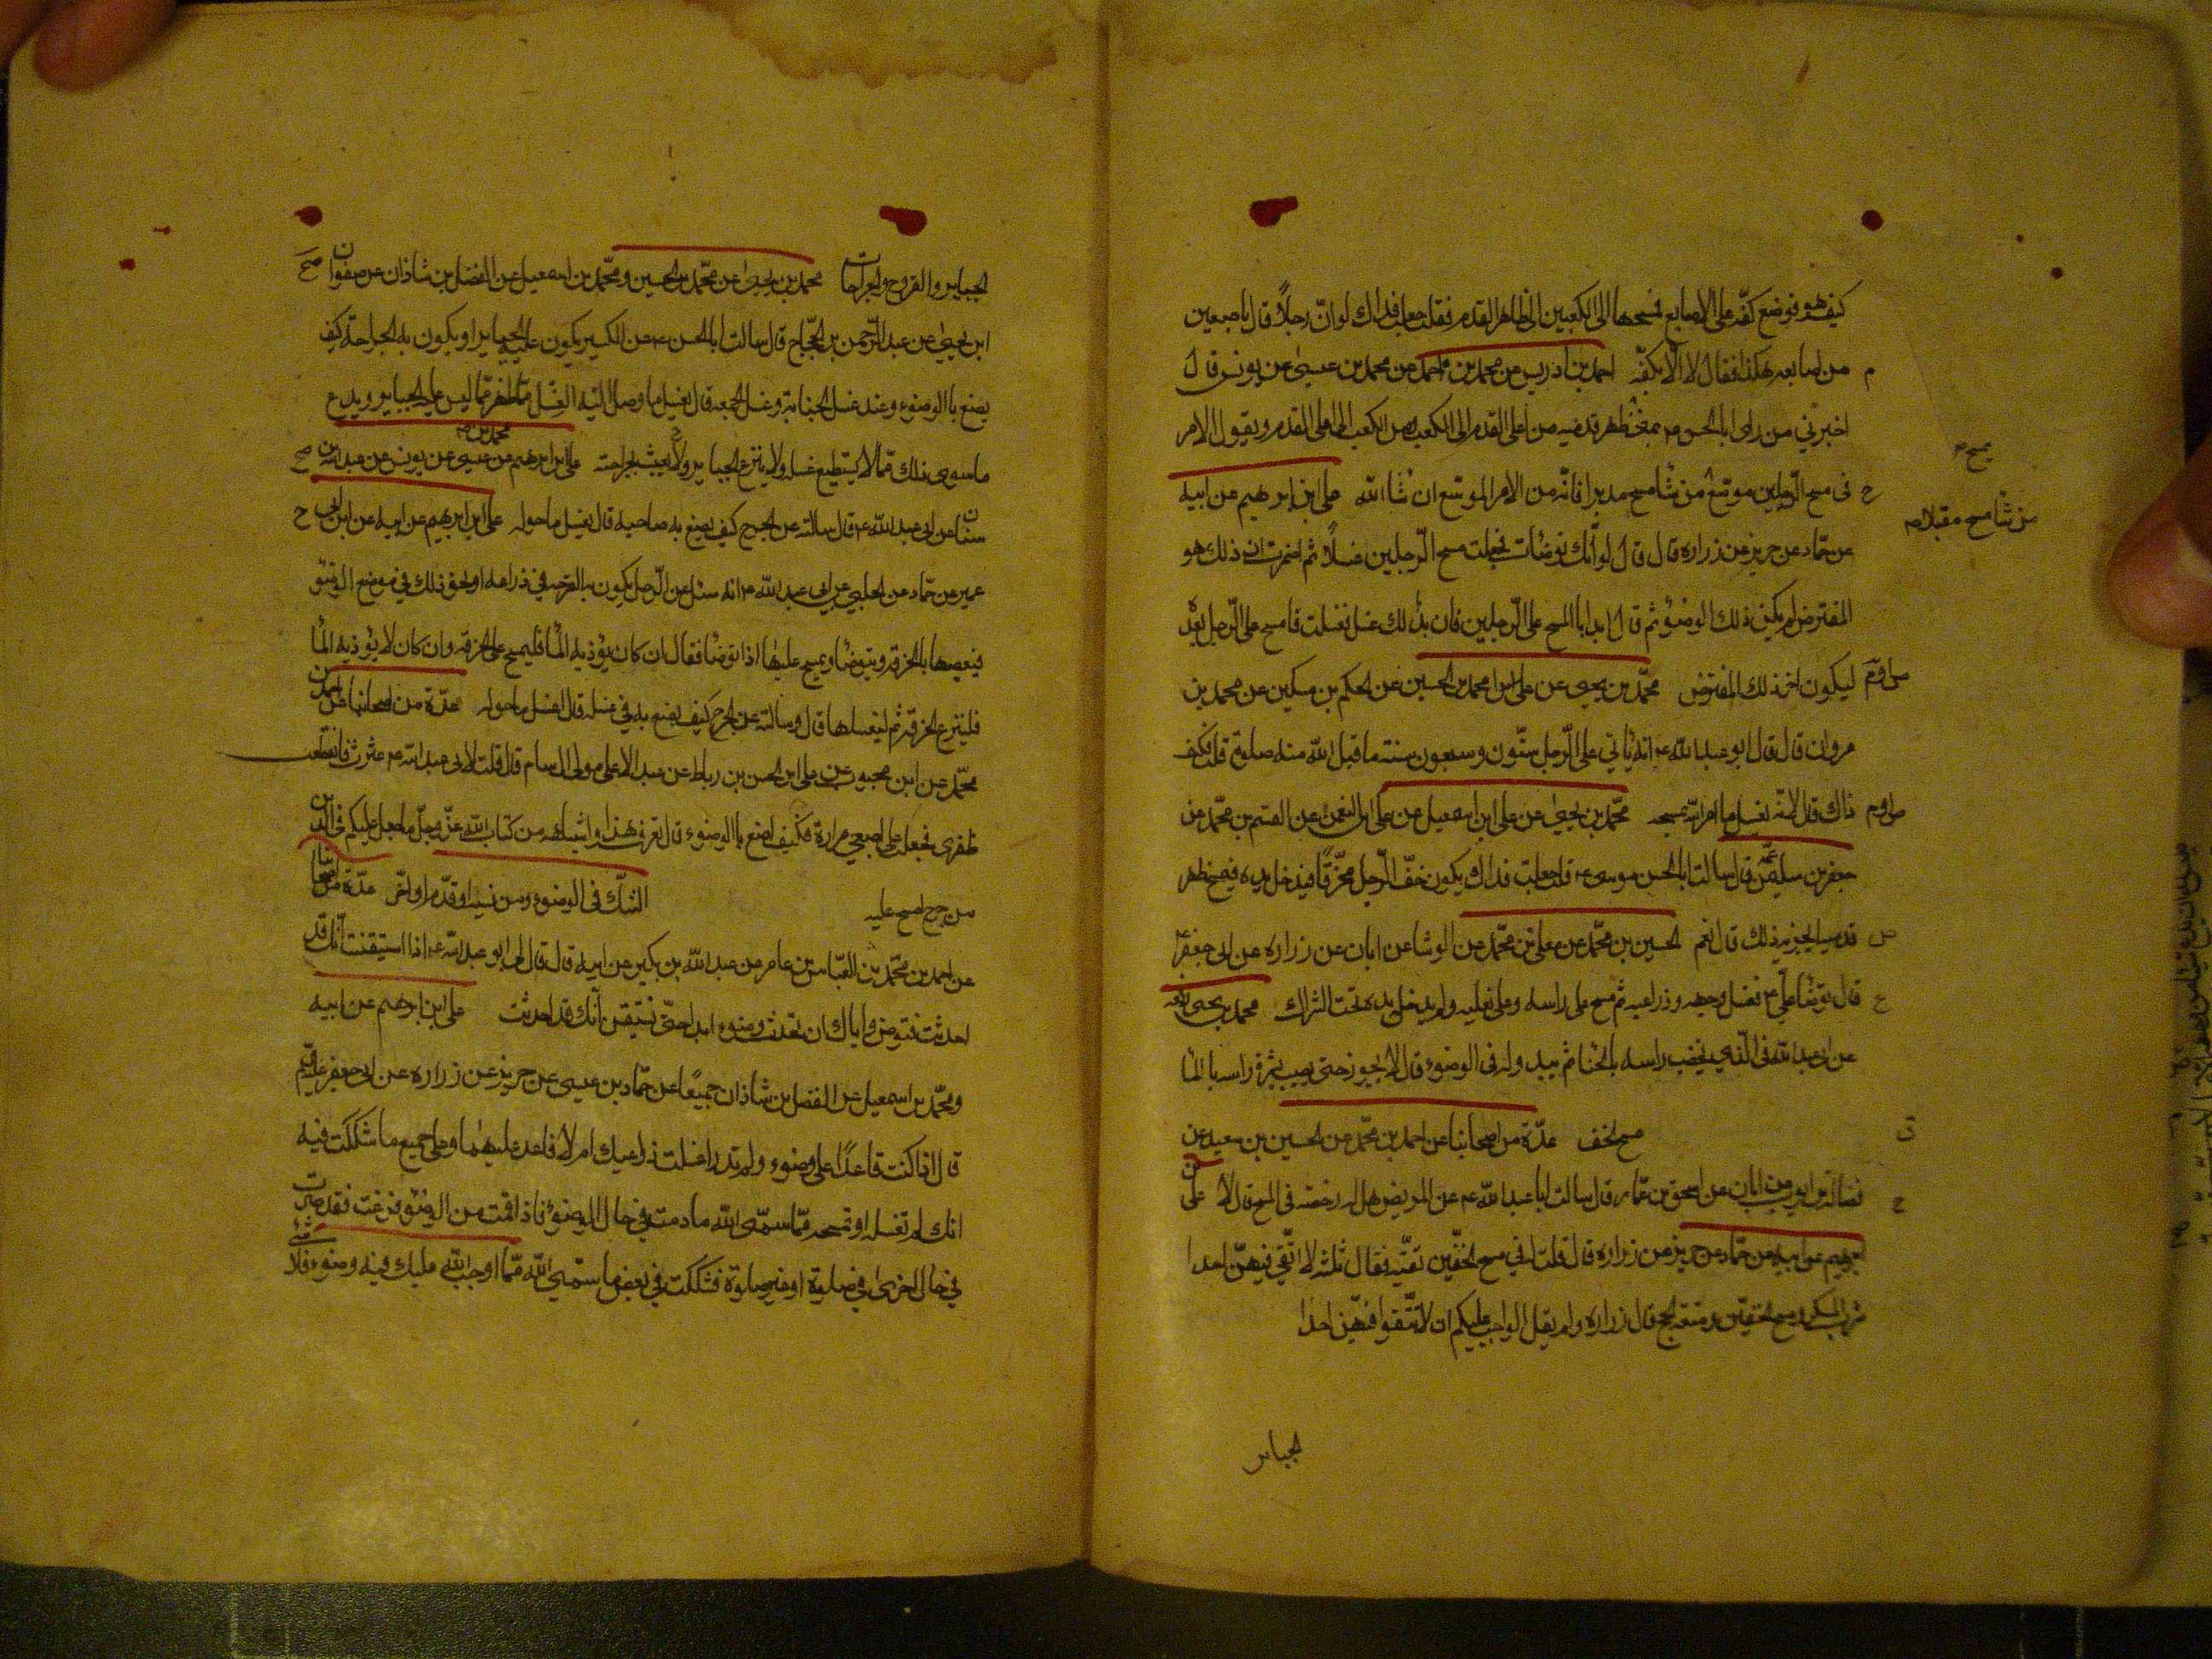 كيف هو فوضع كفّه على الاصابع فمسحها الى الكعبين الى ظاهر القدم فقلت جعلت فداك لو انّ رجلاً قال باصبعين
من اصابعه هكذا فقال لا الّا بكفّه احمد بن ادريس عن محمد بن احمد عن محمد بن عيسى عن يونس قال
اخبرني من راى ابا الحسن ع بمنى ظهر قدميه من اعلى القدم الى الكعب ومن الكعب الى اعلى القدم ويقول الامر
يمسح
فى مسح الرّجلين موسّع من شا مسح مدبرا فانّه من الامر الموسّع ان شا الله على ابن ابرهيم عن ابيه
من شا مسح مقبلا
عن حمّاد عن حريز عن زراره قال قال لو انّك توضات فجعلت مسح الرّجلين غسلاً ثم اضمرت ان ذلك هو
المفترض لم يكن ذلك الوضوء ثم قال ابدا بالمسح على الرّجلين فان بدا لك غسل فغسلت فامسح على الرّجل بعده
ليكون اخر ذلك المفترض محمّد بن يحيى عن على ابن محمد بن الحسين عن الحكم بن مسكين عن محمد بن
مروان قال قال ابو عبد الله ع انّه ياتي على الرّجل ستّون وسبعون سنة ما قبل الله منه صلوة قلت كيف
ذاك قال لانّه يغسل ما امر الله بمسحه محمّد بن يحيى عن على ابن اسمعيل عن على ابن النعمن عن القسم بن محمّد عن
جعفر بن سليمن قال سالت ابا الحسن موسى ع قلت جعلت فداك يكون خفّ الرّجل مخرّقاً فيدخل يده فيمسح ظهر
قدميه ايجزيه ذلك قال نعم الحسين بن محمّد عن معلى بن محمّد عن الوشا عن ابان عن زراره عن ابى جعفر ع
قال توضّا على ع فغسل وجهه وذراعيه ثم مسح على راسه وعلى نعليه ولم يدخل يده تحت الشراك محمد بن يحيى رفعه
عن ابى عبد الله فى الّذي يخضب راسه بالحنا ثم يبدو له فى الوضوء قال لا يجوز حتى يصيب بشرة راسه بالما
مسح الخف عدّة من اصحابنا عن احمد بن محمّد عن الحسين بن سعيد عن
فضالة بن ايوب عن ابان عن اسحق بن عمّار قال سالت ابا عبد الله ع عن المريض هل له رخصة فى المسح قال لا على بن
ابرهيم عن ابيه عن حمّاد عن حريز عن زراره قال قلت له في مسح الخفّين تقيّة فقال ثلثه لا اتّقي فيهنّ احدا
شرب المسكر ومسح الخفّين ومتعة الحج قال زراره ولم يقل الواجب عليكم ان لا تتّقوا فيهنّ احدا
الجباير
الجباير والقروح والجراحات محمد بن يحيى عن محمّد بن الحسين ومحمّد بن اسمعيل عن الفضل بن شاذان عن صفوان
ابن يحيى عن عبد الرّحمن بن الحجّاج قال سالت ابا الحسن ع عن الكسير يكون عليه الجباير او يكون به الجراحة كيف
يصنع بالوضوء وعند غسل الجنابة وغسل الجمعه قال يغسل ما وصل اليه الغسل ممّا ظهر ممّا ليس عليه الجباير ويدع
ما سوى ذلك ممّا لا يستطيع غسله ولا ينزع الجباير ولا يعبث بجراحته على ابن ابرهيم عن محمد بن عيسى عن يونس عن عبد الله بن
سنان عن ابى عبد الله ع قال سالته عن الجرح كيف يصنع به صاحبه قال يغسل ما حوله على ابن ابرهيم عن ابيه عن ابن ابى
عمير عن حمّاد عن الحلبي عن ابى عبد الله ع انه سئل عن الرّجل يكون به القرحة في ذراعه او نحو ذلك في موضع الوضوء
فيعصبها بالخرقه ويتوضا ويمسح عليها اذا توضا فقال ان كان يؤذيه الما فليمسح على الخرقة وان كان لا يؤذيه الما
فلينزع الخرقة ثم ليغسلها قال وسالته عن الجرح كيف يصنع به في غسله قال اغسل ما حوله عدّة من اصحابنا عن احمد بن
محمّد عن ابن محبوب عن على ابن الحسن بن رباط عن عبد الاعلى مولى ال سام قال قلت لابى عبد الله ع عثرت فانقطع
ظفرى فجعلت على اصبعي مرارة فكيف اصنع بالوضوء قال تعرف هذا واشباهه من كتاب الله عزّ وجلّ ما جعل عليكم فى الدين
من حرج امسح عليه الشكّ فى الوضوء ومن نسيه او قدّم او اخّر عدّة من اصحابنا
عن احمد بن محمّد عن العبّاس بن عامر عن عبد الله بن بكير عن ابيه قال قال لى ابو عبد الله ع اذا استيقنت انّك قد
احدثت فتوض واياك ان تحدث وضوء ابدا حتّى تستيقن انّك قد احدثت على ابن ابرهيم عن ابيه
ومحمّد بن اسمعيل عن الفضل بن شاذان جميعًا عن حمّاد بن عيسى عن حريز عن زراره عن ابى جعفر عليه السّلم
قال اذا كنت قاعدًا على وضوء ولم تدر اغسلت ذراعيك ام لا فاعد عليهما وعلى جميع ما شككت فيه
انك لم تغسله او تمسحه ممّا سمّى الله ما دمت في حال الوضوء فاذا قمت من الوضوء وفرغت فقد صرت
في حال اخرى في صلوة او غير صلوة فشككت في بعض ما سمّى الله ممّا اوجب الله عليك فيه وضوء فلا شئ